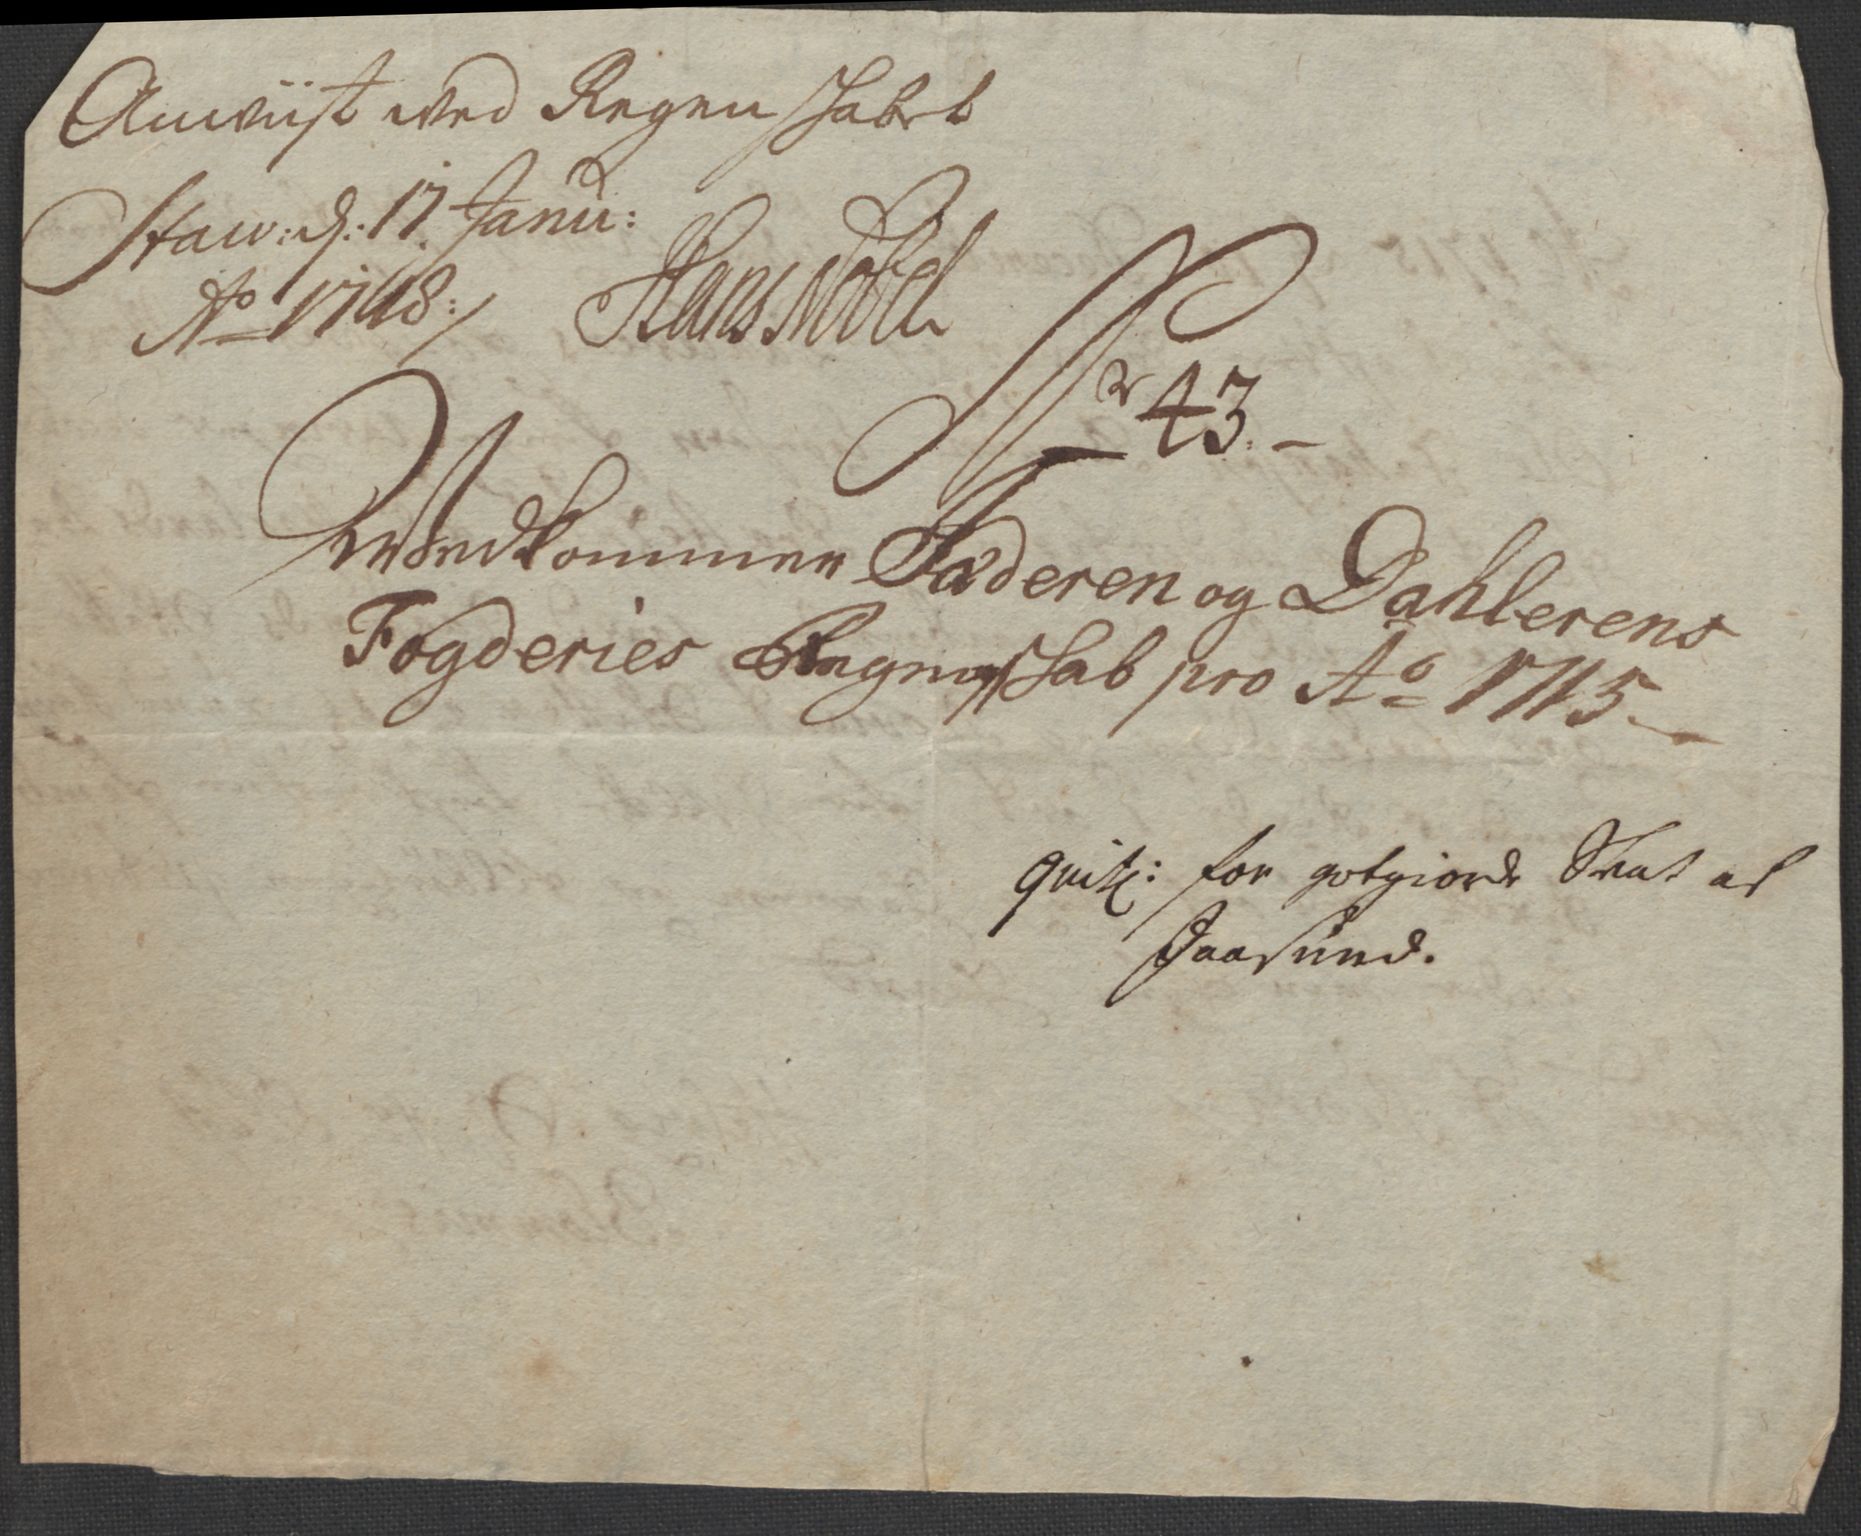 Anwiist wed Regenskabet
Staw: d: 17 Janu:
Ao 1718:/ Hans Nobel
Nr 43.-
Wedkommer Jæderen og Dahlerens
Fogderies Regenskab pro Ao 1715.
quit: for godgiorde Skat af
Jaasund.